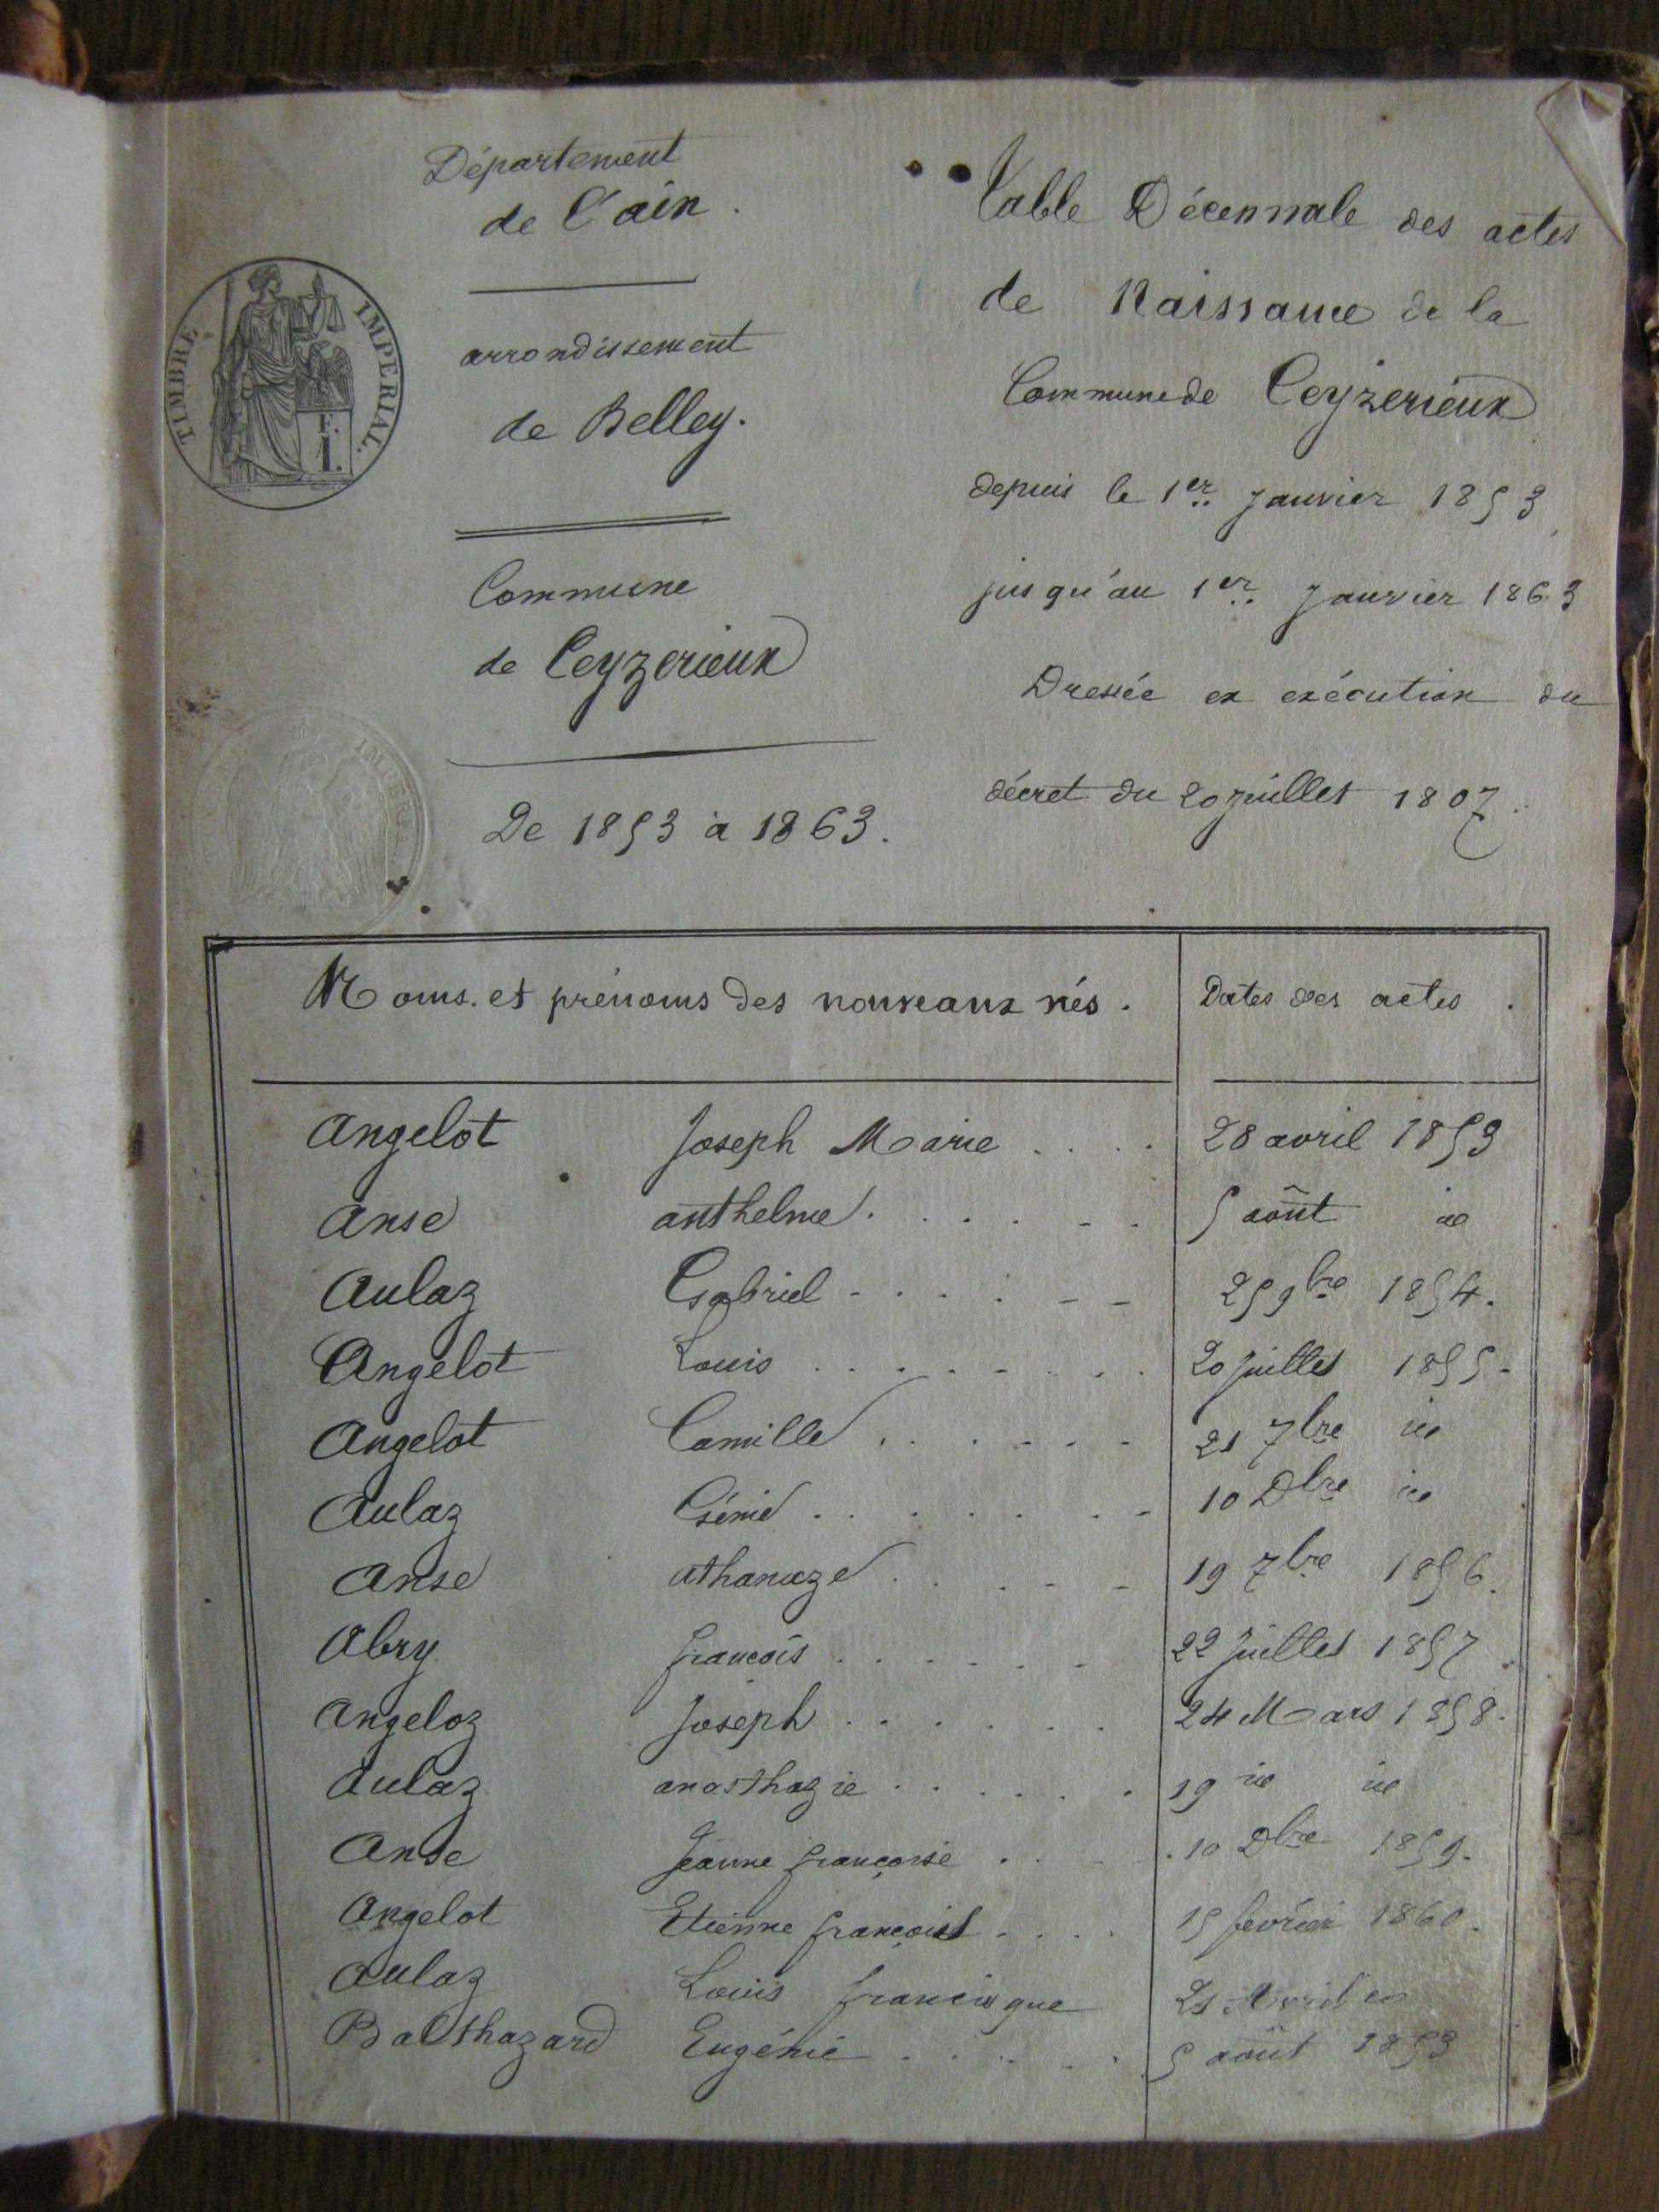 Département
de l'ain.
TIMBRE IMPERIAL.
F.
1.
arrondissement
de Belley.
Commune
de Ceyzerieux
De 1853 à 1863.
Table Décennale des actes
de Naissance de la
Commune de Ceyzerieux
depuis le 1er Janvier 1853
jusqu'au 1er Janvier 1863
Dressée en exécution du
décret du 20 juillet 1807.
Noms. et prénoms des nouveaux nés. Dates des actes.
Angelot Joseph Marie .... 28 avril 1853
Anse anthelme ...... 5 août id
Aulaz Gabriel ...... 25 9bre 1854.
Angelot Louis ........ 20 juillet 1855-
Angelot Camille ...... 21 7bre id
Aulaz Génie ........ 10 Dbre id
Anse athanaze ..... 19 7bre 1856.
Abry francois ...... 22 Juillet 1857
Angeloz Joseph ...... 24 Mars 1858.
Aulaz anasthazie ...... 19 id id
Anse Jeanne françoise ... 10 Dbre 1859.
Angelot Etienne françois .... 15 fevrier 1860.
Aulaz Louis francisque 21 Avril
Balthazard Eugénie ..... 5 août 1853